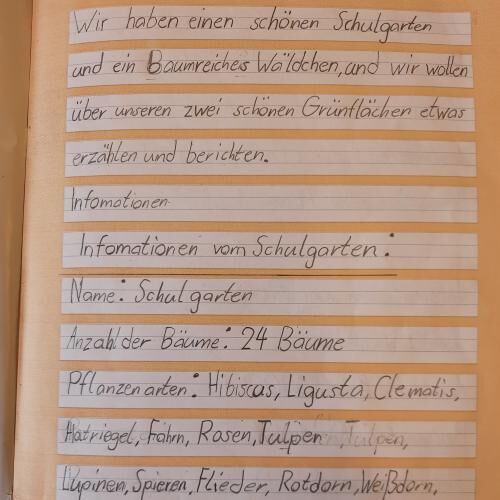 Wir haben einen schönen Schulgarten
und ein Baumreiches Wäldchen, und wir wollen
über unseren zwei schönen Grünflächen etwas
erzählen und berichten.
Infomationen
Infomationen vom Schulgarten:
Name: Schulgarten
Anzahl der Bäume: 24 Bäume
Pflanzenarten: Hibiscus, Ligusta, Clematis,
Hatriegel, Fahrn, Rosen, Tulpen, Tulpen,
Lupinen, Spieren, Flieder, Rotdorn, Weißdorn,